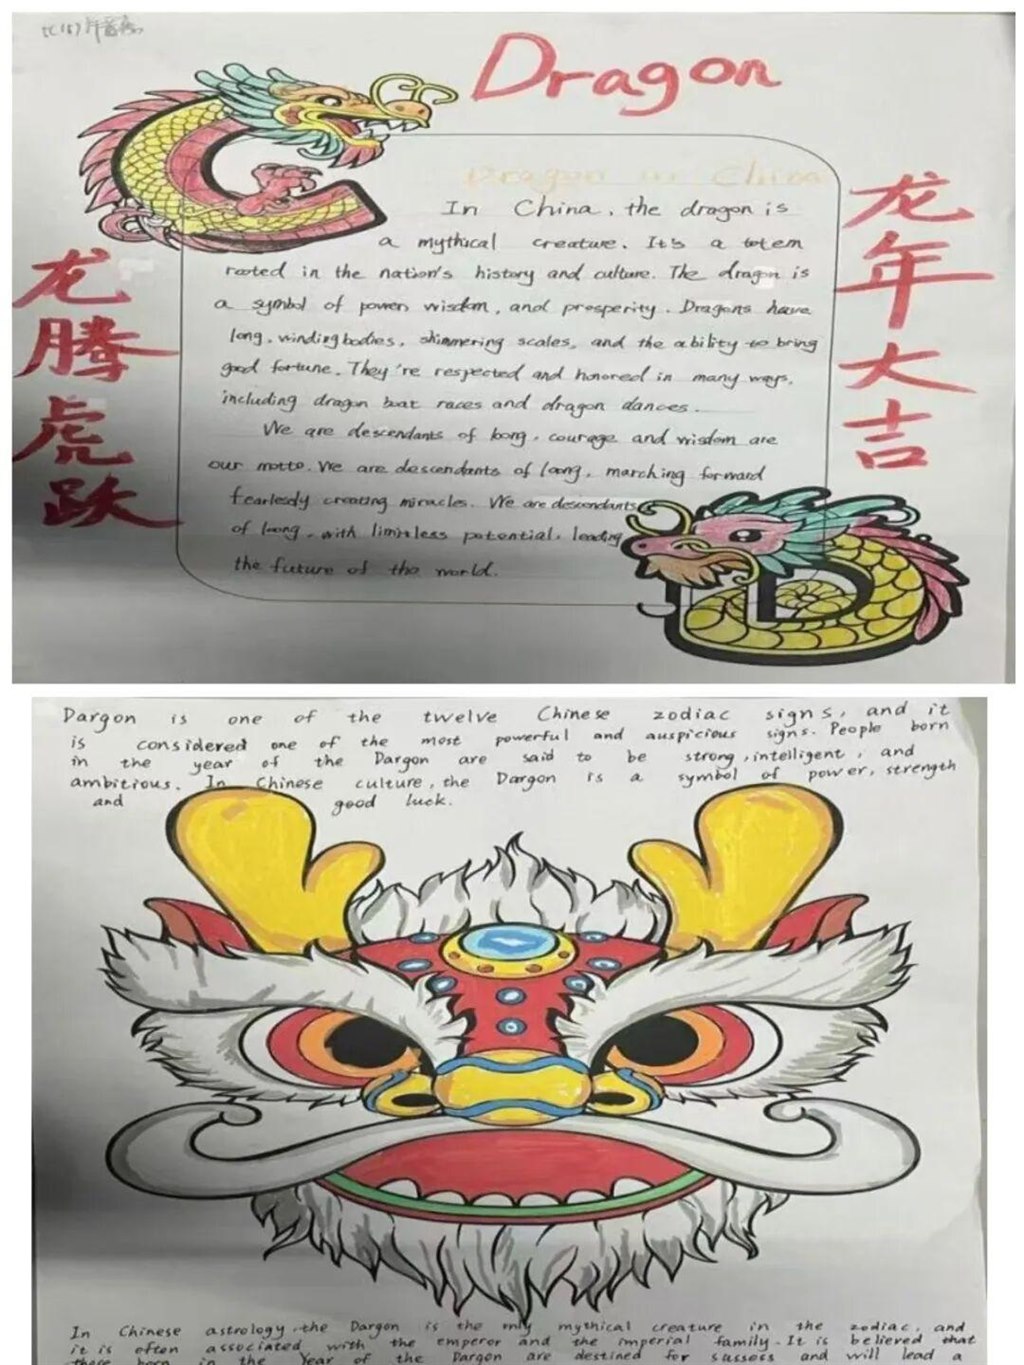 Dragon
Dragon in China
In China, the dragon is
a mythical creature. It's a totem
rooted in the nation's history and culture. The dragon is
a symbol of power, wisdom, and prosperity. Dragons have
long, winding bodies, shimmering scales, and the ability to bring
good fortune. They're respected and honored in many ways,
including dragon boat races and dragon dances.
We are descendants of loong, courage and wisdom are
our motto. We are descendants of loong, marching forward
fearlessly creating miracles. We are descendants
of loong, with limitless potential, leading
the future of the world.
龙腾虎跃
龙年大吉
Dargon is one of the twelve Chinese zodiac signs, and it
is considered one of the most powerful and auspicious signs. People born
in the year of the Dargon are said to be strong, intelligent, and
ambitious. In Chinese culture, the Dargon is a symbol of power, strength
and good luck.
In Chinese astrology, the Dargon is the only mythical creature in the zodiac, and
it is often associated with the emperor and the imperial family. It is believed that
those born in the Year of the Dargon are destined for success and will lead a